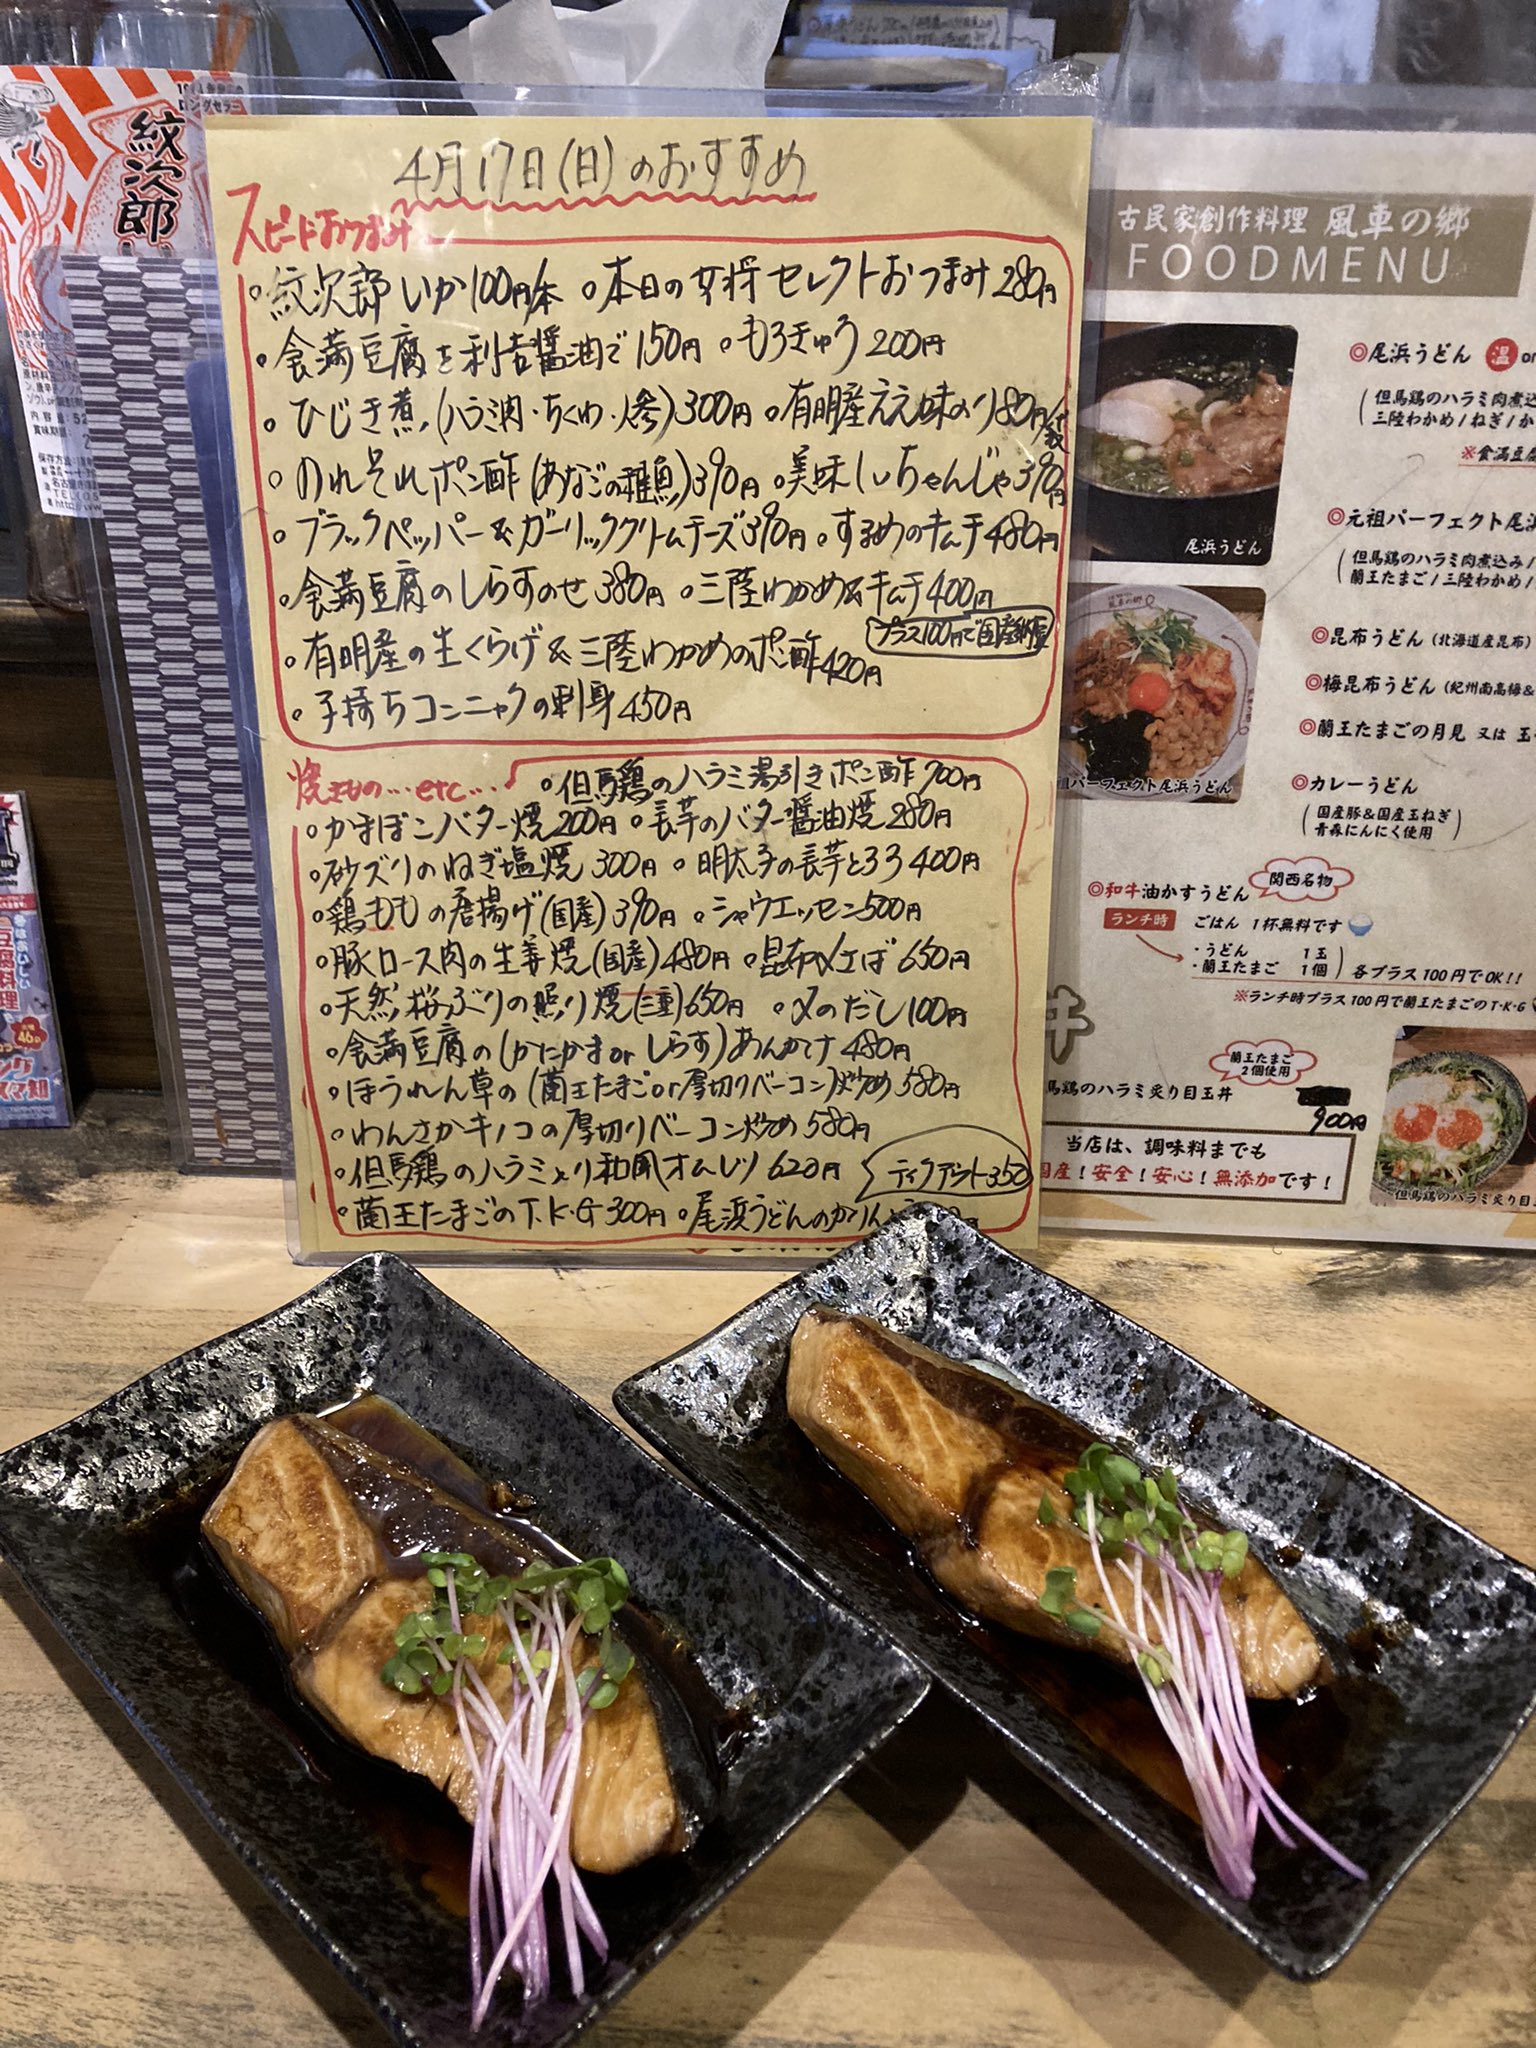 4月17日(日)のおすすめ
スピードおつまみ
・紋次郎いか100円/本 ・本日の女将セレクトおつまみ280円
・食満豆腐を利吉醤油で150円 ・もろきゅう200円
・ひじき煮(ハラミ肉・ちくわ・人参)300円 ・有明産ええ味のり80円/袋
・のれそれポン酢(あなごの稚魚)390円 ・美味しいちゃんじゃ390円
・ブラックペッパー&ガーリッククリームチーズ390円 ・するめのキムチ480円
・食満豆腐のしらすのせ380円 ・三陸わかめ&キムチ400円
プラス100円で国産納豆
・有明産の生くらげ&三陸わかめのポン酢420円
・子持ちコンニャクの刺身450円
焼きもの…etc…
・但馬鶏のハラミ湯引きポン酢700円
・かまぼこバター焼200円 ・長芋のバター醤油焼280円
・砂ズリのねぎ塩焼300円 ・明太子の長芋とろろ400円
・鶏ももの唐揚げ(国産)390円 ・シャウエッセン500円
・豚ロース肉の生姜焼(国産)480円 ・昆布〆さば650円
・天然桜ぶりの照り焼(三重)650円 ・〆のだし100円
・食満豆腐の(かにかまorしらす)あんかけ480円
・ほうれん草の(蘭王たまごor厚切りベーコン)炒め580円
・わんさかキノコの厚切りベーコン炒め580円
・但馬鶏のハラミ入り和風オムレツ620円
テイクアウト350
・蘭王たまごのT.K.G300円 ・尾浜うどんのかりん
古民家創作料理 風車の郷
FOODMENU
◎尾浜うどん 温 or
(但馬鶏のハラミ肉煮込
三陸わかめ/ねぎ/か
※食満豆腐
尾浜うどん
◎元祖パーフェクト尾浜
(但馬鶏のハラミ肉煮込み/
蘭王たまご/三陸わかめ/
パーフェクト尾浜うどん
◎昆布うどん(北海道産昆布)
◎梅昆布うどん(紀州南高梅&
◎蘭王たまごの月見 又は 玉
◎カレーうどん
(国産豚&国産玉ねぎ
青森にんにく使用)
◎和牛油かすうどん 関西名物
ランチ時 ごはん 1杯無料です
・うどん 1玉
・蘭王たまご 1個) 各プラス100円でOK!!
※ランチ時プラス100円で蘭王たまごのT・K・G
丼
蘭王たまご
2個使用
馬鶏のハラミ炙り目玉丼
900円
当店は、調味料までも
国産!安全!安心!無添加です!
但馬鶏のハラミ炙り目玉
紋次郎
ロングセラー